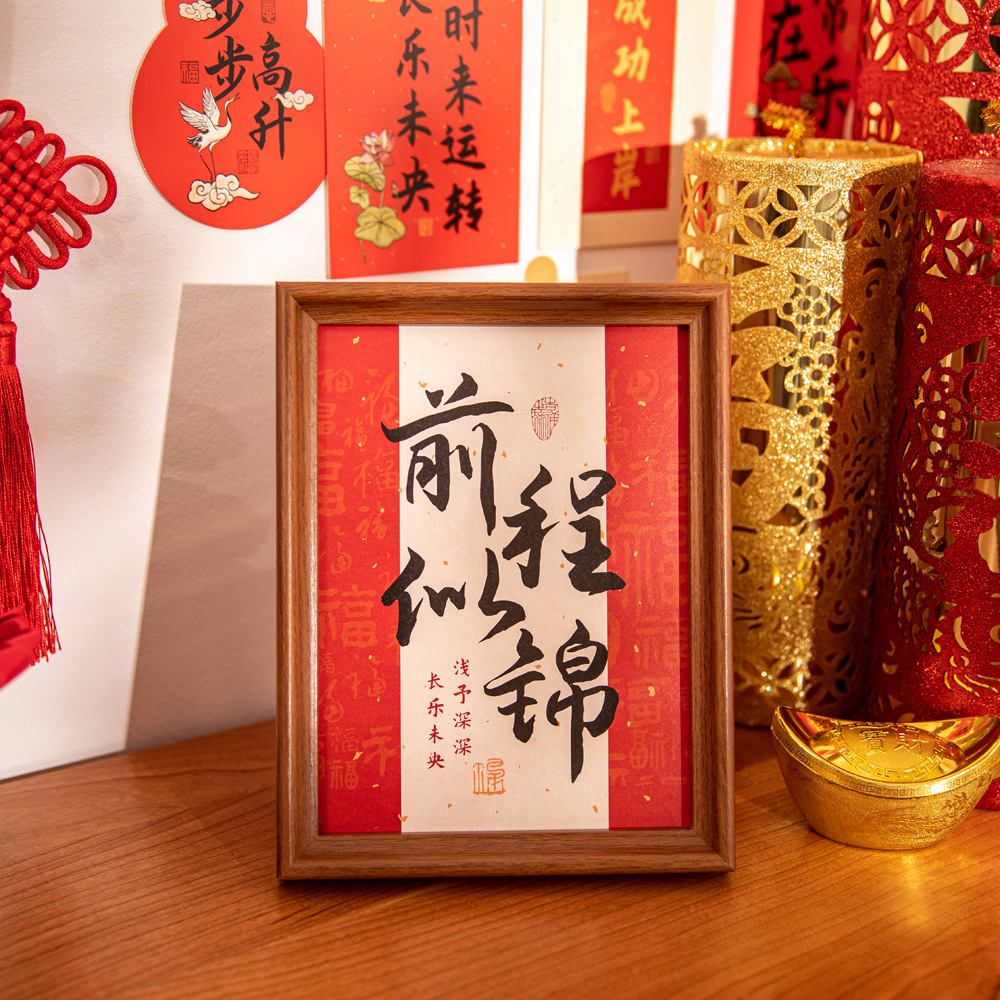 步步
高升
时来运转
长乐未央
成功上岸
常乐
在
前程
似锦
浅予深深
长乐未央
福
寶財